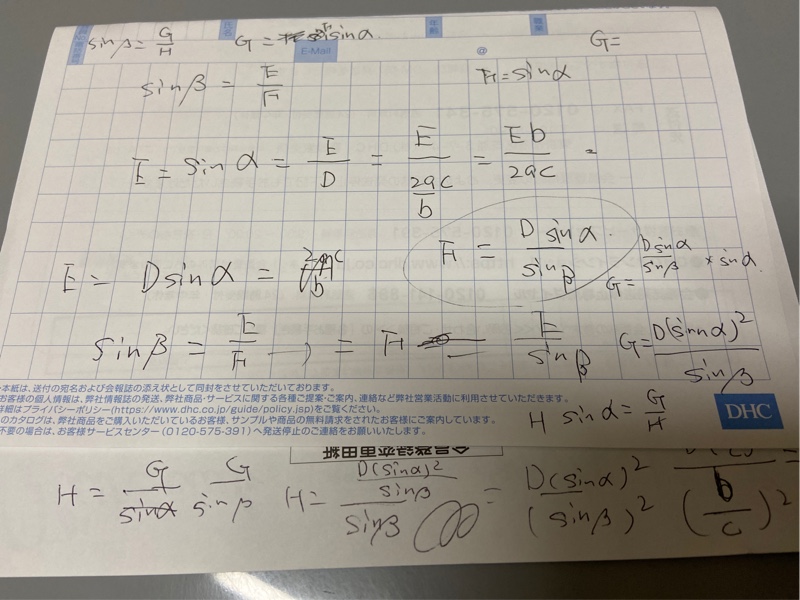 sinβ = G/H
氏名
G = F sinα
E-Mail
年齢
@
職業
G=
sinβ = E/F
F = sinα
E = sinα = E/D = E/(2ac/b) = Eb/2ac =
F = D sinα / sinβ
G = D sinα / sinβ × sinα
E = D sinα =
sinβ = E/F → = F = E/sinβ
G = D(sinα)² / sinβ
本紙は、送付の宛名および会報誌の添え状として同封をさせていただいております。
お客様の個人情報は、弊社商品・サービスに関する各種ご提案・ご案内、連絡など弊社営業活動に利用させていただきます。
詳細はプライバシーポリシー(https://www.dhc.co.jp/guide/policy.jsp)をご覧ください。
のカタログは、弊社商品をご購入いただいているお客様、サンプルや商品の無料請求をされたお客様にご案内しています。
不要の場合は、お客様サービスセンター(0120-575-391)へ発送停止のご連絡をお願いいたします。
DHC
H sinα = G/H
H = G/sinα G/sinβ
H = (D(sinα)²/sinβ) / sinβ = D(sinα)² / (sinβ)²
(b/c)²